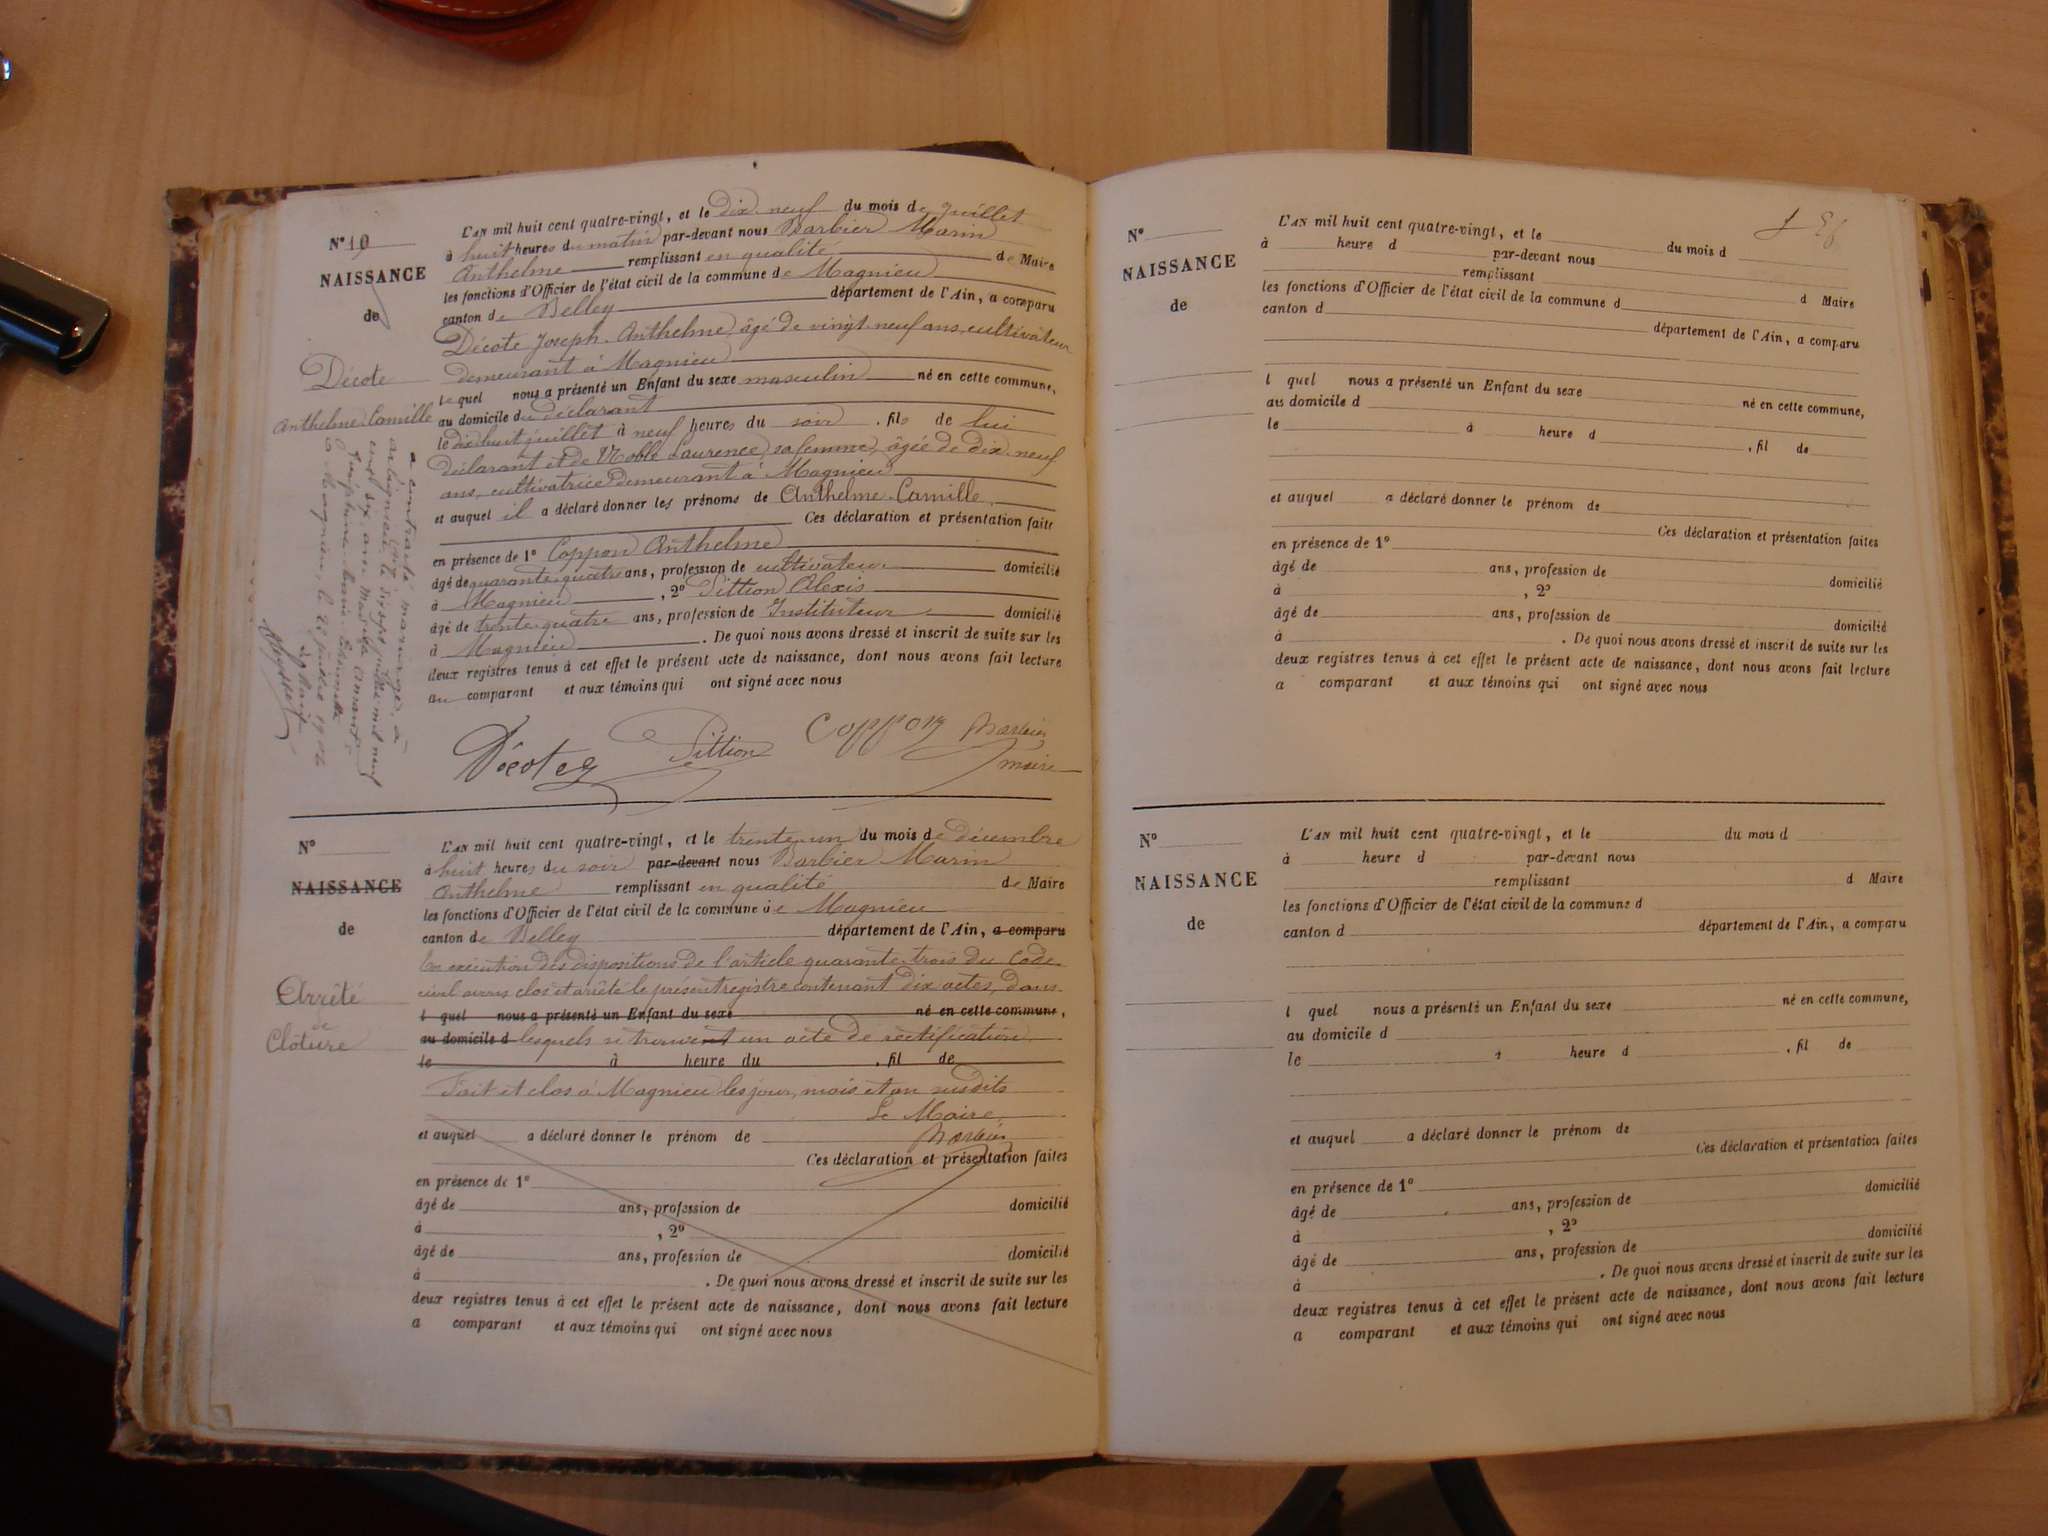 N° 10
NAISSANCE
de
Décote
Anthelme Camille
L'AN mil huit cent quatre-vingt, et le dix neuf du mois de juillet
à huit heures du matin par-devant nous Barbier Marin
Anthelme remplissant en qualité de Maire
les fonctions d'Officier de l'état civil de la commune de Magnieu
canton de Belley département de l'Ain, a comparu
Décote Joseph Anthelme, âgé de vingt-neuf ans, cultivateur
demeurant à Magnieu
lequel nous a présenté un Enfant du sexe masculin né en cette commune,
au domicile du déclarant
le dix huit juillet à neuf heures du soir, fils de lui
déclarant et de Noble Laurence, sa femme, âgée de dix-neuf
ans, cultivatrice demeurant à Magnieu
et auquel il a déclaré donner les prénoms de Anthelme Camille
Ces déclaration et présentation faite
en présence de 1° Coppon Anthelme
âgé de quarante-quatre ans, profession de cultivateur domicilié
à Magnieu, 2° Pittion Alexis
âgé de trente-quatre ans, profession de Instituteur domicilié
à Magnieu. De quoi nous avons dressé et inscrit de suite sur les
deux registres tenus à cet effet le présent acte de naissance, dont nous avons fait lecture
au comparant et aux témoins qui ont signé avec nous
Décote Pittion Coppon Barbier
maire
a contracté mariage, à
mil neuf
cent six, avec
Joséphine Marie
à Magnieu, le 22 1906
N°
NAISSANCE
de
Arrêté
de
Clôture
L'AN mil huit cent quatre-vingt, et le trente-un du mois de décembre
à huit heures du soir par-devant nous Barbier Marin
Anthelme remplissant en qualité de Maire
les fonctions d'Officier de l'état civil de la commune de Magnieu
canton de Belley département de l'Ain, a comparu
En exécution des dispositions de l'article quarante-trois du Code
civil avons clos et arrêté le présent registre contenant dix actes, dans
l quel nous a présenté un Enfant du sexe né en cette commune,
au domicile d lesquels se trouvent un acte de rectification
le à heure du , fil de
Fait et clos à Magnieu les jour, mois et an susdits
Le Maire,
et auquel a déclaré donner le prénom de Barbier
Ces déclaration et présentation faites
en présence de 1°
âgé de ans, profession de domicilié
à , 2°
âgé de ans, profession de domicilié
à . De quoi nous avons dressé et inscrit de suite sur les
deux registres tenus à cet effet le présent acte de naissance, dont nous avons fait lecture
a comparant et aux témoins qui ont signé avec nous
N°
NAISSANCE
de
L'AN mil huit cent quatre-vingt, et le du mois d
à heure d par-devant nous
remplissant d Maire
les fonctions d'Officier de l'état civil de la commune d
canton d département de l'Ain, a comparu
l quel nous a présenté un Enfant du sexe né en cette commune,
au domicile d
le à heure d , fil de
et auquel a déclaré donner le prénom de
Ces déclaration et présentation faites
en présence de 1°
âgé de ans, profession de domicilié
à , 2°
âgé de ans, profession de domicilié
à . De quoi nous avons dressé et inscrit de suite sur les
deux registres tenus à cet effet le présent acte de naissance, dont nous avons fait lecture
a comparant et aux témoins qui ont signé avec nous
N°
NAISSANCE
de
L'AN mil huit cent quatre-vingt, et le du mois d
à heure d par-devant nous
remplissant d Maire
les fonctions d'Officier de l'état civil de la commune d
canton d département de l'Ain, a comparu
l quel nous a présenté un Enfant du sexe né en cette commune,
au domicile d
le à heure d , fil de
et auquel a déclaré donner le prénom de
Ces déclaration et présentation faites
en présence de 1°
âgé de ans, profession de domicilié
à , 2°
âgé de ans, profession de domicilié
à . De quoi nous avons dressé et inscrit de suite sur les
deux registres tenus à cet effet le présent acte de naissance, dont nous avons fait lecture
a comparant et aux témoins qui ont signé avec nous